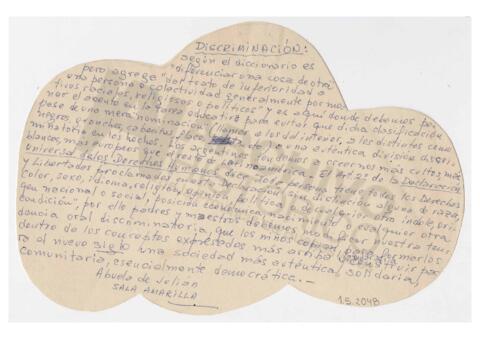 DISCRIMINACIÓN:
según el diccionario es
pero agrega "diferenciar una cosa de otra
una persona o colectividad generalmente por mo-
tivos raciales, religiosos o políticos" y es aquí donde debemos po-
ner el acento en la tarea educativa para evitar que dicha clasificación
pase de una mera "nominación" (llamar a los del interior, a los distintos
negros, gronchos, cabecitas a una auténtica división discri-
minatoria en los hechos. Los argentinos tendemos a creernos más cultos, más
blancos, más europeos que el resto de Latinoamérica. El Art. 2º de la Declaración
Universal de los Derechos Humanos dice: toda persona tiene todos los Derechos
y Libertades proclamados en esta Declaración, sin distinción alguna de raza,
color, sexo, idioma, religión, opinión política o de cualquier otra índole, ori-
gen nacional o social, posición económica, nacimiento o cualquier otra
condición", por ello padres y maestros debemos modificar nuestra ten-
dencia oral discriminatoria, que los niños copian,
dentro de los conceptos expresados más arriba construir pa-
ra el nuevo siglo una sociedad más auténtica, solidaria,
comunitaria, esencialmente democrática.—
Abuela de Julian
SALA AMARILLA
1.5.2048